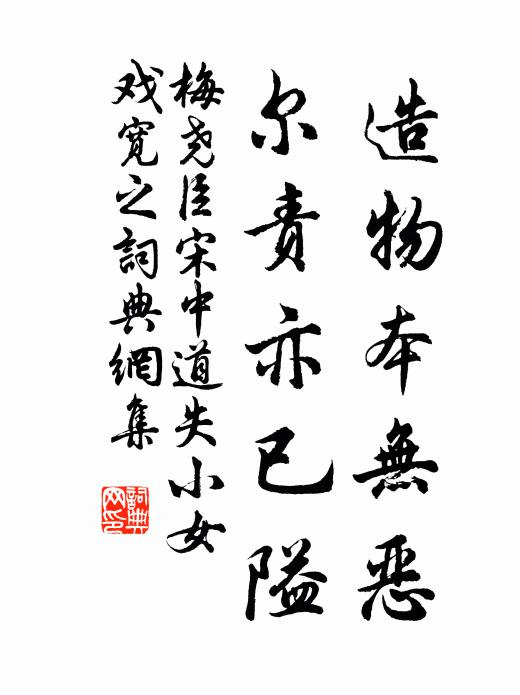 造物本無惡
尔責亦已隘
梅尧臣宋中道失小女
戏寛之詞典網集
詞典网印